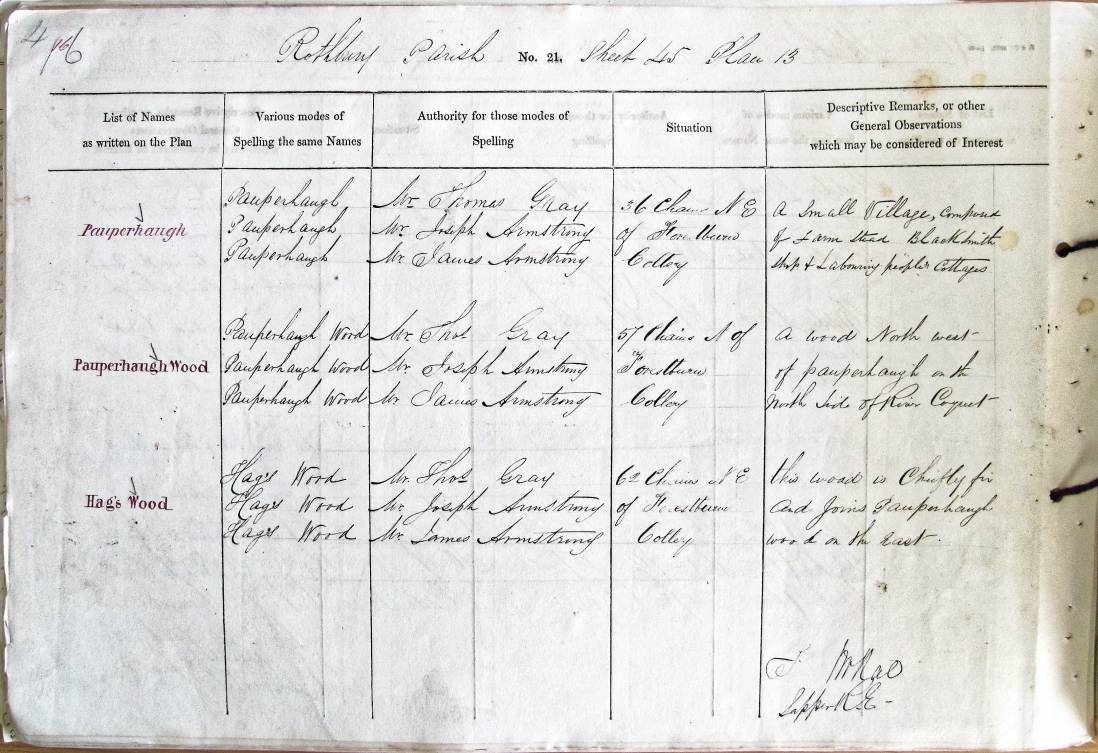 4
Rothbury Parish No. 21. Sheet 45 Plan 13
List of Names
as written on the Plan
Various modes of
Spelling the same Names
Authority for those modes of
Spelling
Situation
Descriptive Remarks, or other
General Observations
which may be considered of Interest
Pauperhaugh
Pauperhaugh
Pauperhaugh
Pauperhaugh
Mr. Thomas Gray
Mr. Joseph Armstrong
Mr. James Armstrong
36 Chains N E
of Forestburn
Collery
A Small Village, Compound
of Farm stead Blacksmith
shop & Labouring people's Cottages
Pauperhaugh Wood
Pauperhaugh Wood
Pauperhaugh Wood
Pauperhaugh Wood
Mr. Thos. Gray
Mr. Joseph Armstrong
Mr. James Armstrong
57 Chains N of
Forestburn
Collery
A wood North west
of pauperhaugh on the
North Side of River Coquet
Hag's Wood
Hag's Wood
Hag's Wood
Hag's Wood
Mr. Thos. Gray
Mr. Joseph Armstrong
Mr. James Armstrong
62 Chains N E
of Forestburn
Collery
this wood is Chiefly fir
and Joins Pauperhaugh
wood on the east.
Sapper R.E.